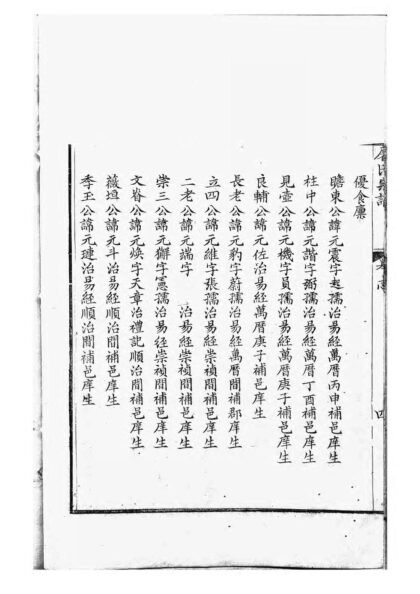 氏 譜
四
優食廩
瞻東公諱元震字起孺治易經萬曆丙申補邑庠生
柱中公諱元諧字弼孺治易經萬曆丁酉補邑庠生
見壺公諱元機字員孺治易經萬曆庚子補邑庠生
良輔公諱元佐治易經萬曆庚子補邑庠生
長老公諱元豹字蔚孺治易經萬曆間補郡庠生
立四公諱元維字張孺治易經崇禎間補邑庠生
二老公諱元端字 治易經崇禎間補邑庠生
崇三公諱元獬字憲孺治易經崇禎間補邑庠生
文眷公諱元煥字天章治禮記順治間補邑庠生
薇垣公諱元斗治易經順治間補邑庠生
季玉公諱元璉治易經順治間補邑庠生